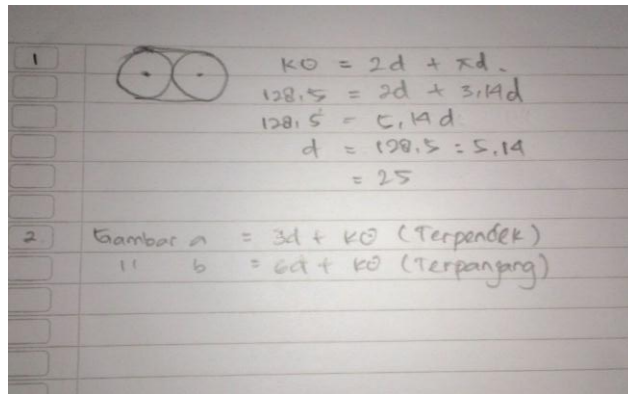 1 KO = 2d + πd.
128,5 = 2d + 3,14d
128,5 = 5,14 d
d = 128,5 : 5,14
= 25
2. Gambar a = 3d + KO (Terpendek)
11 b = 6d + KO (Terpanjang)